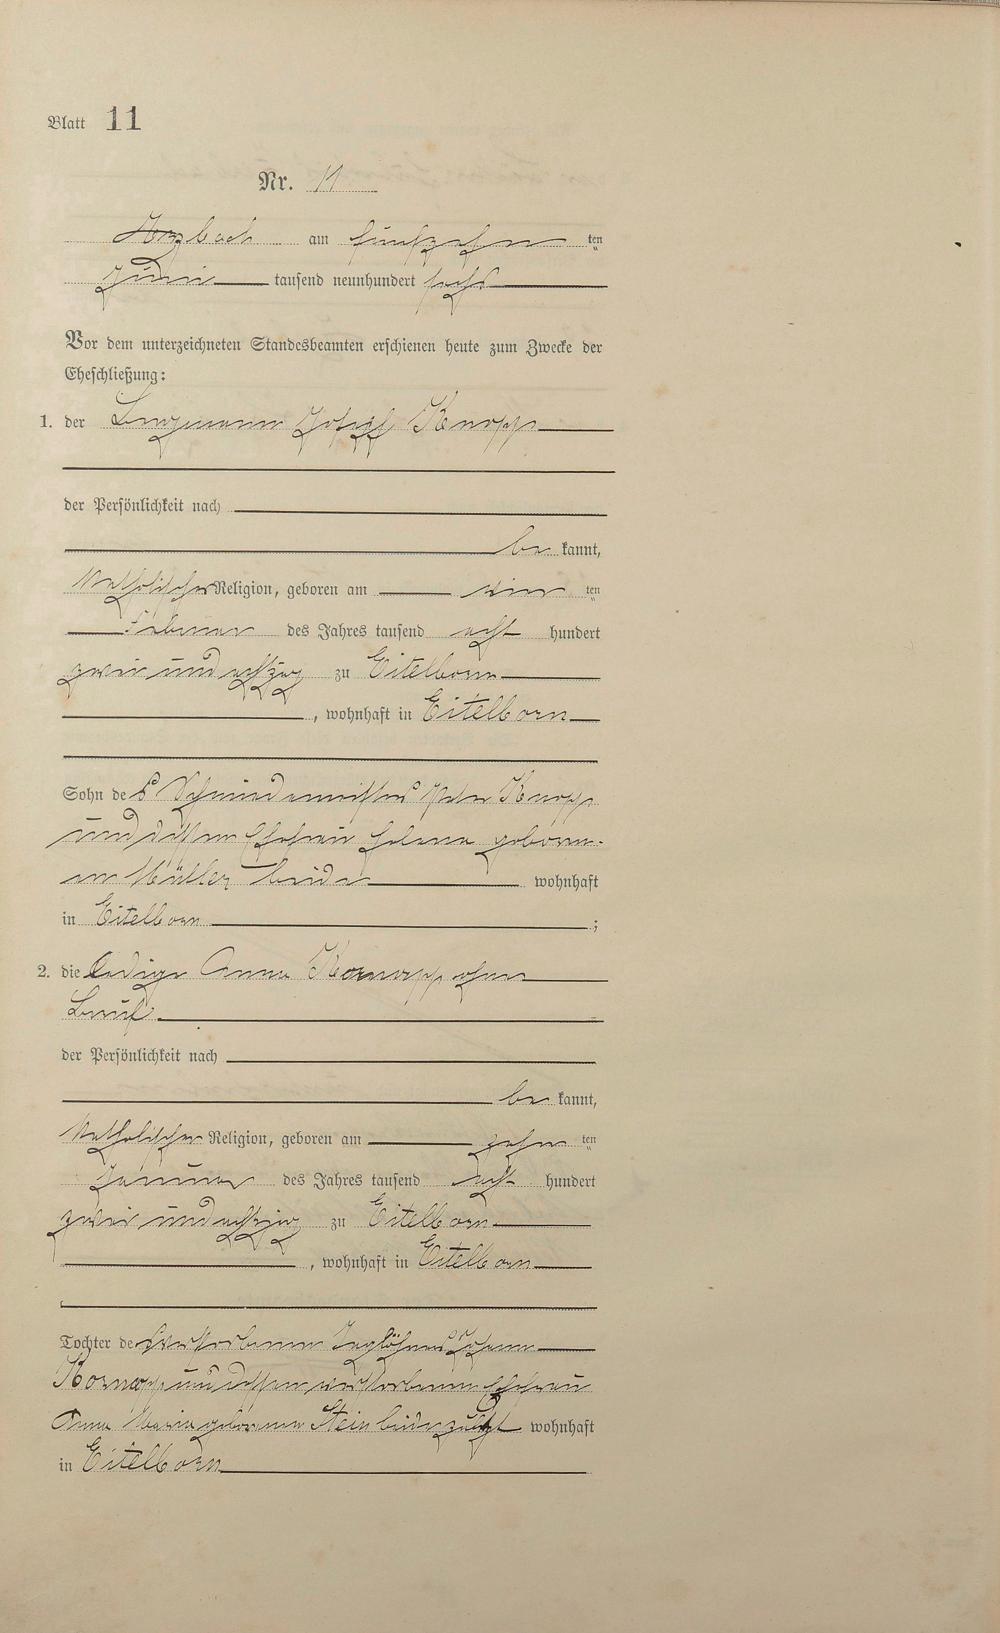 Blatt 11
Nr. 11
Arzbach am fünfzehn ten
Juni tausend neunhundert sechs
Vor dem unterzeichneten Standesbeamten erschienen heute zum Zwecke der
Eheschließung:
1. der Bergmann Josef Knopp
der Persönlichkeit nach
be kannt,
katholischer Religion, geboren am vier ten
Februar des Jahres tausend acht hundert
zwei und achtzig zu Eitelborn
, wohnhaft in Eitelborn
Sohn des Schmiedemeisters Peter Knopp
und dessen Ehefrau Helena gebore-
nen Müller beide wohnhaft
in Eitelborn ;
2. die ledige Anna ohne
Beruf
der Persönlichkeit nach
be kannt,
katholischer Religion, geboren am zehn ten
Januar des Jahres tausend acht hundert
zwei und achtzig zu Eitelborn
, wohnhaft in Eitelborn
Tochter des verstorbenen Taglöhners Johann
und dessen verstorbenen Ehefrau
Anna Maria geborenen Stein beide zuletzt wohnhaft
in Eitelborn